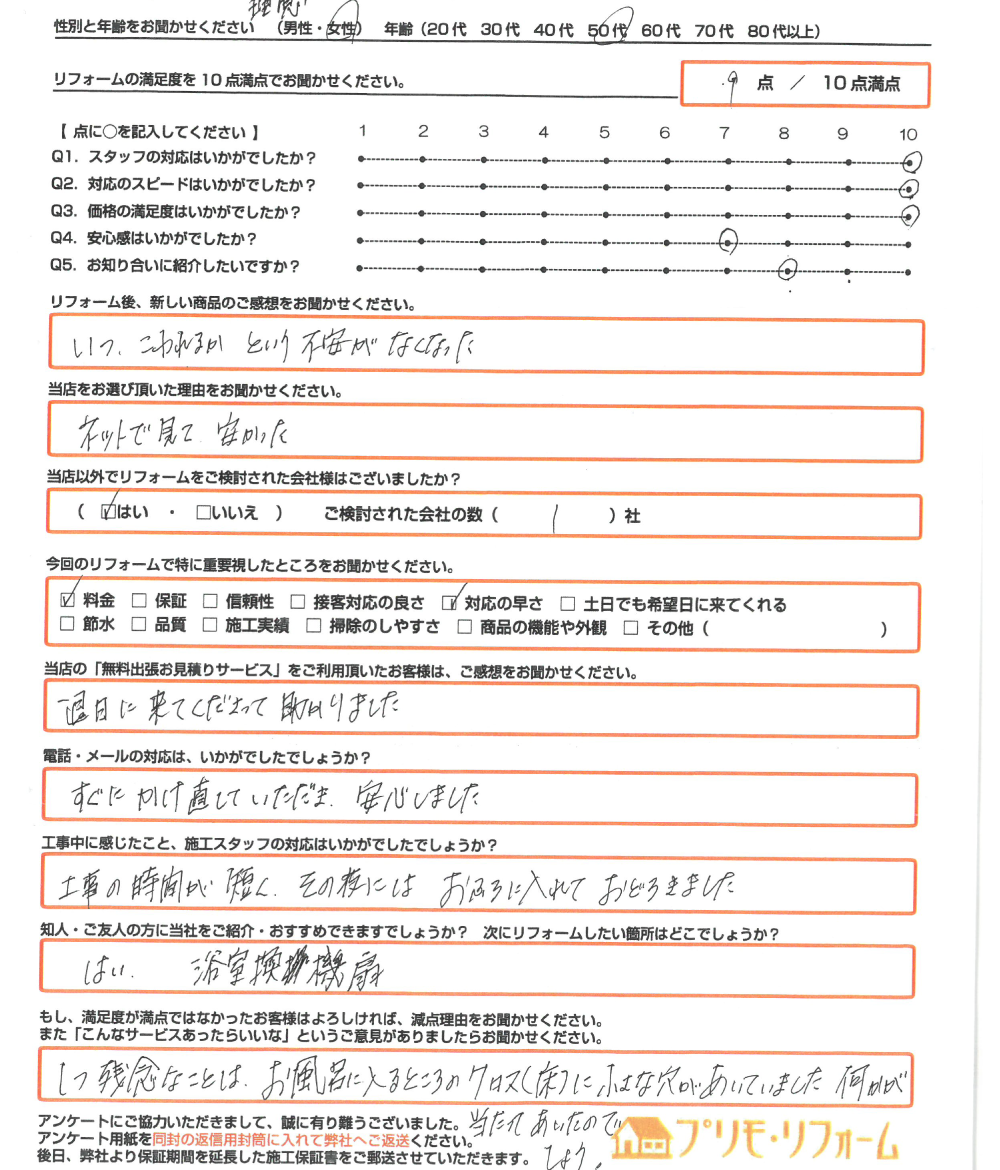 性別と年齢をお聞かせください (男性・女性) 年齢(20代 30代 40代 50代 60代 70代 80代以上)
リフォームの満足度を10点満点でお聞かせください。 9 点 / 10点満点
【 点に○を記入してください 】 1 2 3 4 5 6 7 8 9 10
Q1. スタッフの対応はいかがでしたか?
Q2. 対応のスピードはいかがでしたか?
Q3. 価格の満足度はいかがでしたか?
Q4. 安心感はいかがでしたか?
Q5. お知り合いに紹介したいですか?
リフォーム後、新しい商品のご感想をお聞かせください。
いつ、こわれるか という 不安が なくなった
当店をお選び頂いた理由をお聞かせください。
ネットで見て、安かった
当店以外でリフォームをご検討された会社様はございましたか?
( ☑はい ・ □いいえ ) ご検討された会社の数( 1 )社
今回のリフォームで特に重要視したところをお聞かせください。
☑ 料金 □ 保証 □ 信頼性 □ 接客対応の良さ ☑ 対応の早さ □ 土日でも希望日に来てくれる
□ 節水 □ 品質 □ 施工実績 □ 掃除のしやすさ □ 商品の機能や外観 □ その他( )
当店の「無料出張お見積りサービス」をご利用頂いたお客様は、ご感想をお聞かせください。
日に 来てくださって 助かりました
電話・メールの対応は、いかがでしたでしょうか?
すぐに かけ直していただき 安心しました
工事中に感じたこと、施工スタッフの対応はいかがでしたでしょうか?
工事の時間が 短く、その夜には おふろに入れて おどろきました
知人・ご友人の方に当社をご紹介・おすすめできますでしょうか? 次にリフォームしたい箇所はどこでしょうか?
はい. 浴室換機扇
もし、満足度が満点ではなかったお客様はよろしければ、減点理由をお聞かせください。
また「こんなサービスあったらいいな」というご意見がありましたらお聞かせください。
1つ 残念なことは、お風呂に入るところのクロス(床)に 小さな穴があいていました 何かが
当たって あいたので
しょう。
アンケートにご協力いただきまして、誠に有り難うございました。
アンケート用紙を同封の返信用封筒に入れて弊社へご返送ください。
後日、弊社より保証期間を延長した施工保証書をご郵送させていただきます。
プリモ・リフォーム